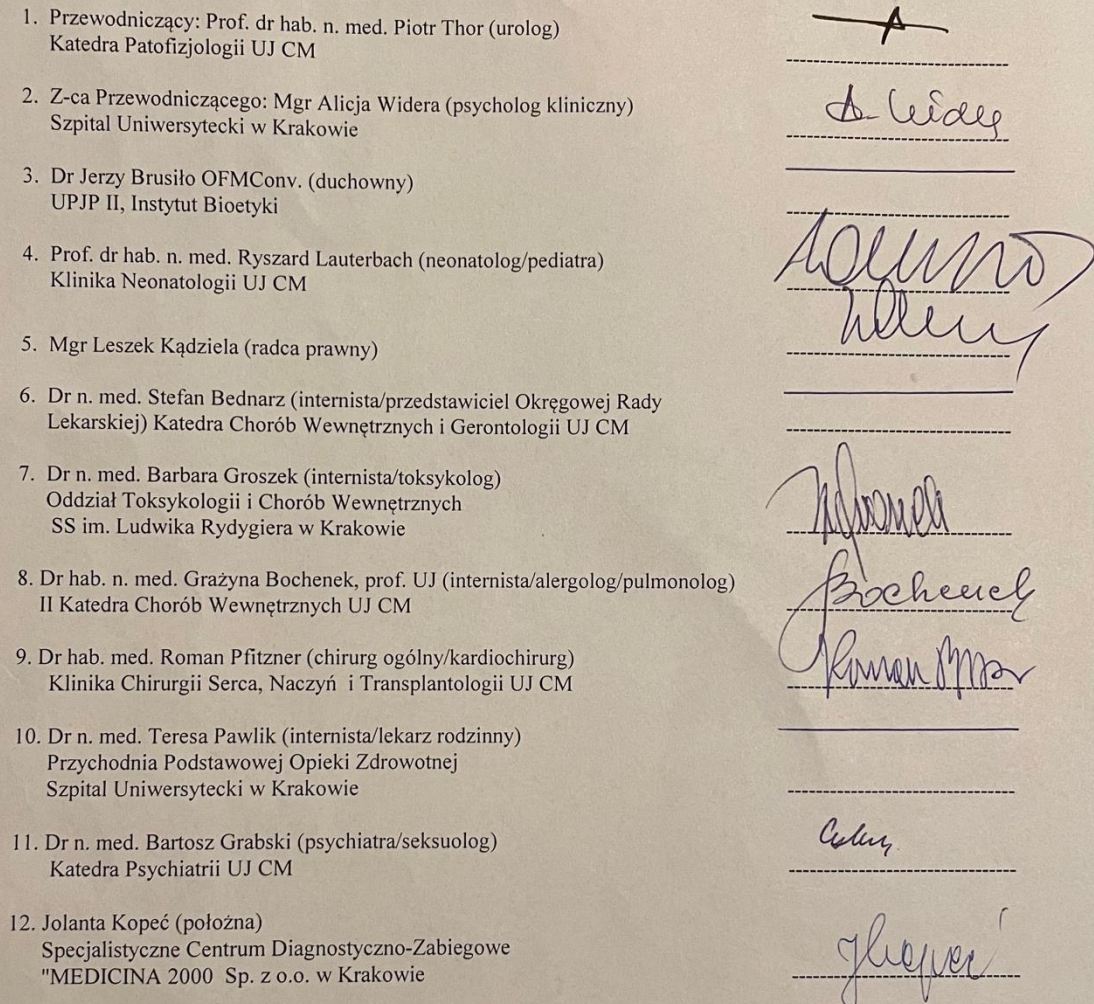 1. Przewodniczący: Prof. dr hab. n. med. Piotr Thor (urolog)
Katedra Patofizjologii UJ CM
2. Z-ca Przewodniczącego: Mgr Alicja Widera (psycholog kliniczny)
Szpital Uniwersytecki w Krakowie
3. Dr Jerzy Brusiło OFMConv. (duchowny)
UPJP II, Instytut Bioetyki
4. Prof. dr hab. n. med. Ryszard Lauterbach (neonatolog/pediatra)
Klinika Neonatologii UJ CM
5. Mgr Leszek Kądziela (radca prawny)
6. Dr n. med. Stefan Bednarz (internista/przedstawiciel Okręgowej Rady
Lekarskiej) Katedra Chorób Wewnętrznych i Gerontologii UJ CM
7. Dr n. med. Barbara Groszek (internista/toksykolog)
Oddział Toksykologii i Chorób Wewnętrznych
SS im. Ludwika Rydygiera w Krakowie
8. Dr hab. n. med. Grażyna Bochenek, prof. UJ (internista/alergolog/pulmonolog)
II Katedra Chorób Wewnętrznych UJ CM
Bochenek
9. Dr hab. med. Roman Pfitzner (chirurg ogólny/kardiochirurg)
Klinika Chirurgii Serca, Naczyń i Transplantologii UJ CM
Roman
10. Dr n. med. Teresa Pawlik (internista/lekarz rodzinny)
Przychodnia Podstawowej Opieki Zdrowotnej
Szpital Uniwersytecki w Krakowie
11. Dr n. med. Bartosz Grabski (psychiatra/seksuolog)
Katedra Psychiatrii UJ CM
12. Jolanta Kopeć (położna)
Specjalistyczne Centrum Diagnostyczno-Zabiegowe
"MEDICINA 2000 Sp. z o.o. w Krakowie